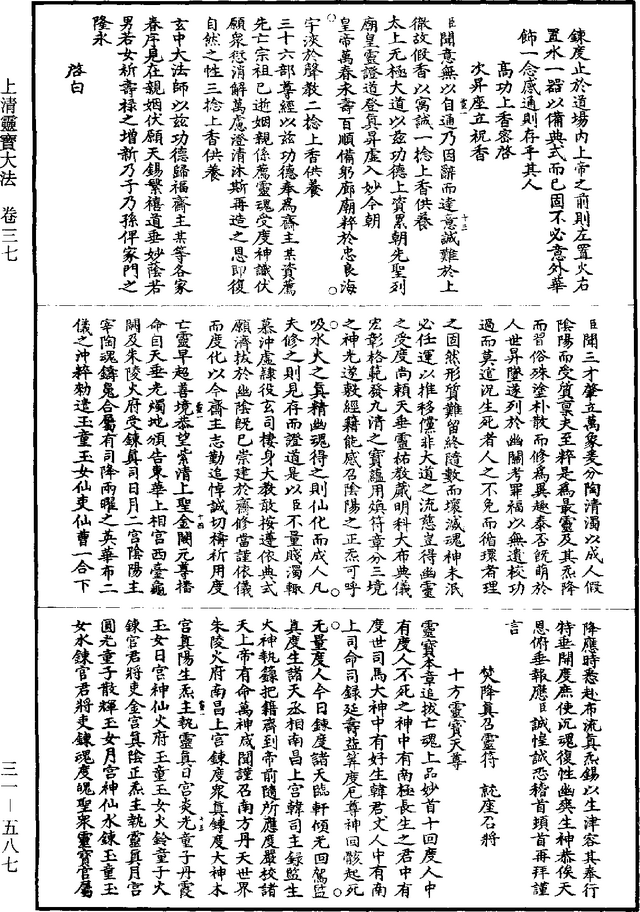 鍊度止於道場內上帝之前則左置火右
置水一器以備典式而已固不必意外華
飾一念感通則存乎其人
高功上香密啓
次昇座立祝香
臣聞意無以自通乃因辭而達意誠難於上
徹故假香以寓誠一捻上香供養
太上无極大道以茲功德上資累朝先聖列
廟皇靈證道登真昇虛入妙今朝
皇帝萬春永壽百順備躬廊廟粹於忠良海
宇浹於聲教二捻上香供養
三十六部尊經以茲功德奉為齋主某資薦
先亡宗祖已逝姻親係薦靈魂受度神識伏
願衆愆消解萬慮澄清沐斯再造之恩即復
自然之性三捻上香供養
玄中大法師以茲功德歸福齋主某等各家
眷序見在親姻伏願天錫繁禧道垂妙蔭若
男若女祈壽祿之增新乃子乃孫俾家門之
隆永
啓白
臣聞三才肇立萬象爰分陶清濁以成人假
陰陽而受質稟夫至粹是為最靈及其炁降
而習俗殊塗朴散而修為異趣泰否既萌於
人世昇墜遂列於幽關考罪福以無遺校功
過而莫逭況生死者人之不免而循環者理
之固然形質難留終隨數而壞滅魂神未泯
必任運以推移儻非大道之流慈豈得幽靈
之受度尚賴天垂靈祐教闡明科大布典儀
宏彰格範發九清之寶蘊用煥符章分三境
之神光遂敷經籍能感召陰陽之正炁可呼
吸水火之真精幽魂得之則仙化而成人凡
夫修之則見存而證道是以臣不量賤濁輒
慕沖虛肄役玄司棲身大教敢按遵依典式
願濟拔於幽陰既已崇建於齋修當謹依儀
而度化以今齋主志勤追悼誠切禱祈用度
亡靈早超善境恭望紫清上聖金闕元尊播
命自天垂光燭地頒告東華上相宮西臺龜
闕及朱陵火府受鍊真司日月二宮陰陽主
宰陶魂鑄魄合屬有司降兩曜之英華布二
儀之沖粹勑遣玉童玉女仙吏仙曹一合下
降應時悉赴布流真炁錫以生津容其奉行
特垂開度庶使沉魂復性幽爽生神恭俟天
恩俯垂報應臣誠惶誠恐稽首頓首再拜謹
言
焚降真召靈符　就座召將
十方靈寶天尊
靈寶本章追拔亡魂上品妙首十回度人中
有度人不死之神中有南極長生之君中有
度世司馬大神中有好生韓君丈人中有南
上司命司錄延壽益算度厄尊神回骸起死
无量度人今日鍊度諸天臨軒傾光回駕監
真度生諸天丞相南昌上宮韓司主錄監生
大神執籙把籍齊到帝前隨所應度嚴校諸
天上帝有命萬神咸聞謹召南方丹天世界
朱陵火府南昌上宮鍊度衆真鍊度大神木
宮真陽生炁主執靈真日宮炎光童子丹霞
玉女日宮神仙火府玉童玉女火鈴童子火
鍊官君將吏金宮真陰正炁主執靈真月宮
圓光童子散輝玉女月宮神仙水鍊玉童玉
女水鍊官君將吏鍊魂度魄聖衆靈寶官屬
上清靈寶大法　卷三七
三一－五八七